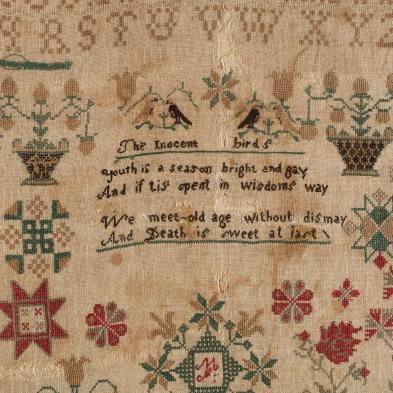 R S T U V W X Y Z
The Inocent birds
youth is a season bright and gay
And if tis spent in wisdoms way
We meet old age without dismay
And Death is sweet at last